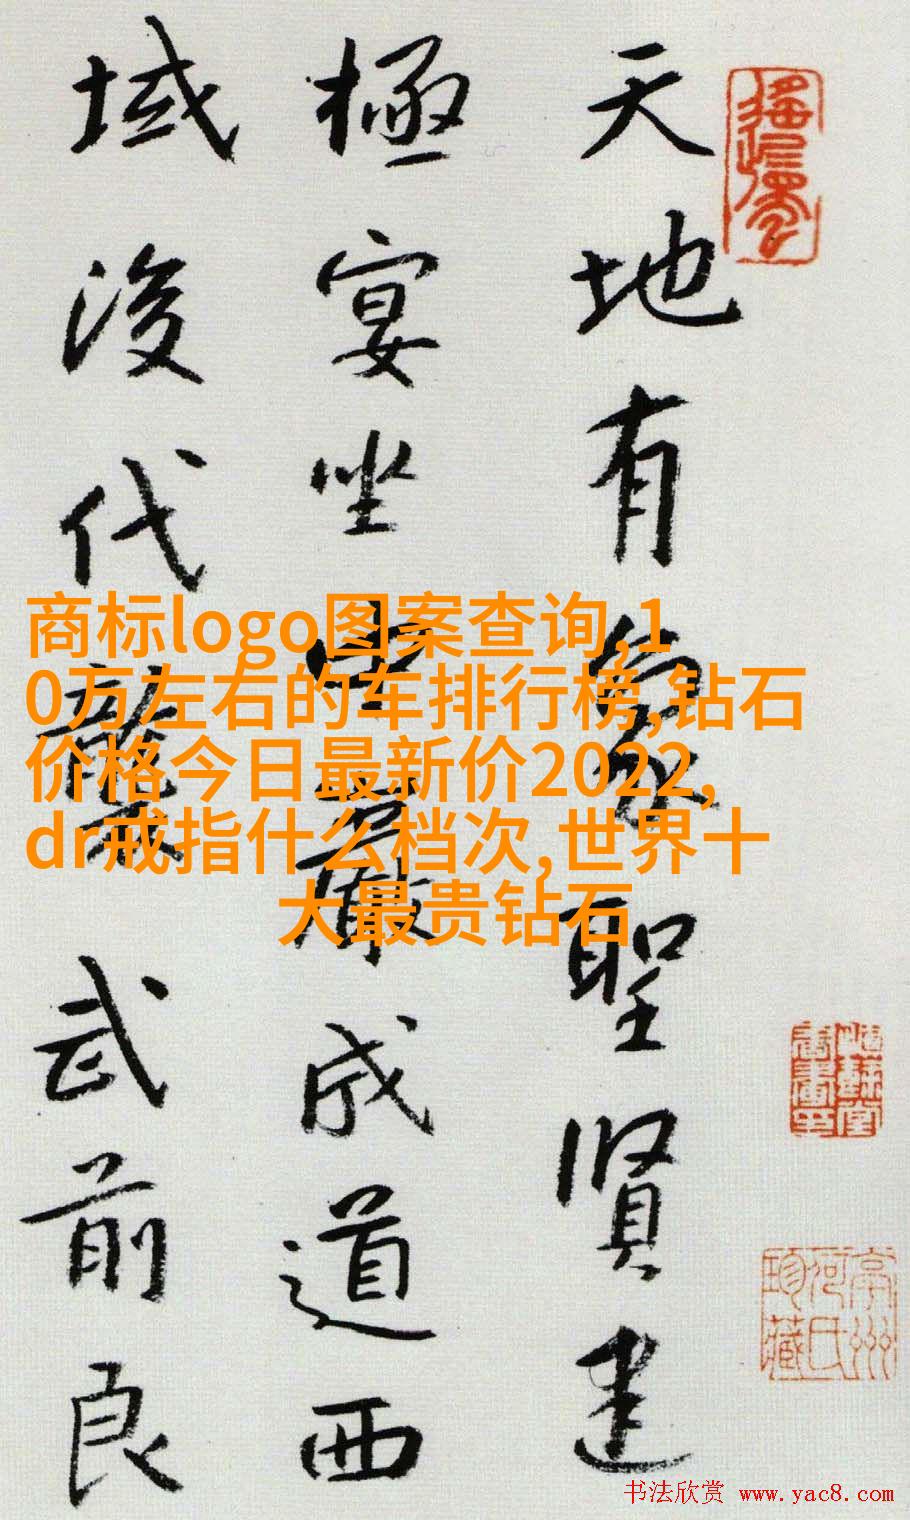 天地有象聖賢建
極宴坐成道西
域後代襲武前良
商标logo图案查询,1
0万左右的车排行榜,钻石
价格今日最新价2022,
dr戒指什么档次,世界十
大最贵钻石
书法欣赏 www.yac8.com